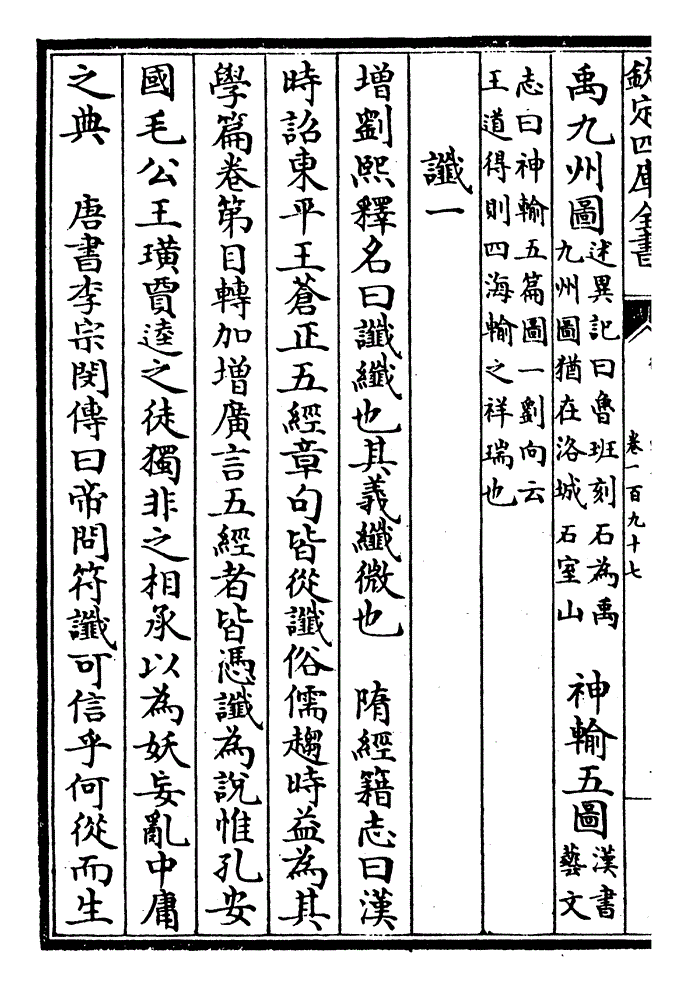 欽定四庫全書
卷一百九十七
禹九州圖述異記曰魯班刻石為禹九州圖猶在洛城石室山　神輸五圖漢書藝文
志曰神輸五篇圖一劉向云王道得則四海輸之祥瑞也
讖一
增劉熙釋名曰讖纖也其義纖微也　隋經籍志曰漢
時詔東平王蒼正五經章句皆從讖俗儒趨時益為其
學篇卷第目轉加增廣言五經者皆憑讖為說惟孔安
國毛公王璜賈逵之徒獨非之相承以為妖妄亂中庸
之典　唐書李宗閔傳曰帝問符讖可信乎何從而生